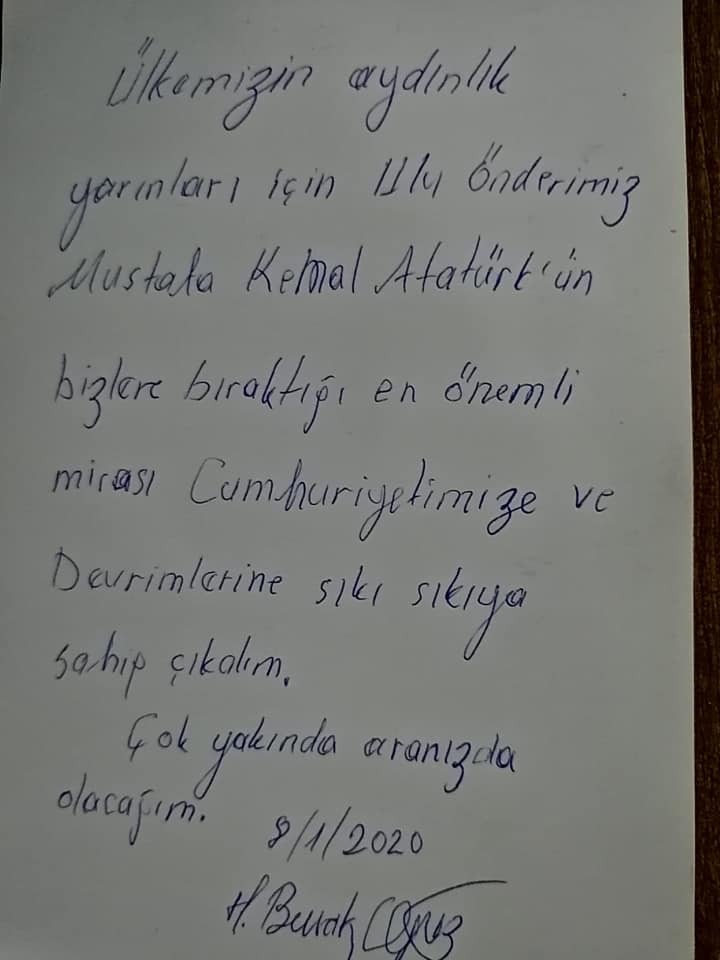 Ülkemizin aydınlık
yarınları için Ulu Önderimiz
Mustafa Kemal Atatürk'ün
bizlere bıraktığı en önemli
mirası Cumhuriyetimize ve
Devrimlerine sıkı sıkıya
sahip çıkalım.
Çok yakında aranızda
olacağım.
8/1/2020
H. Burak Oğuz